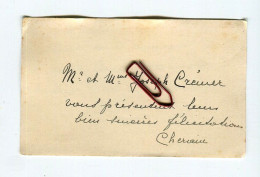 Mr et Mme Joseph Crémer
vous présentent leurs
bien sincères félicitations
Cherain